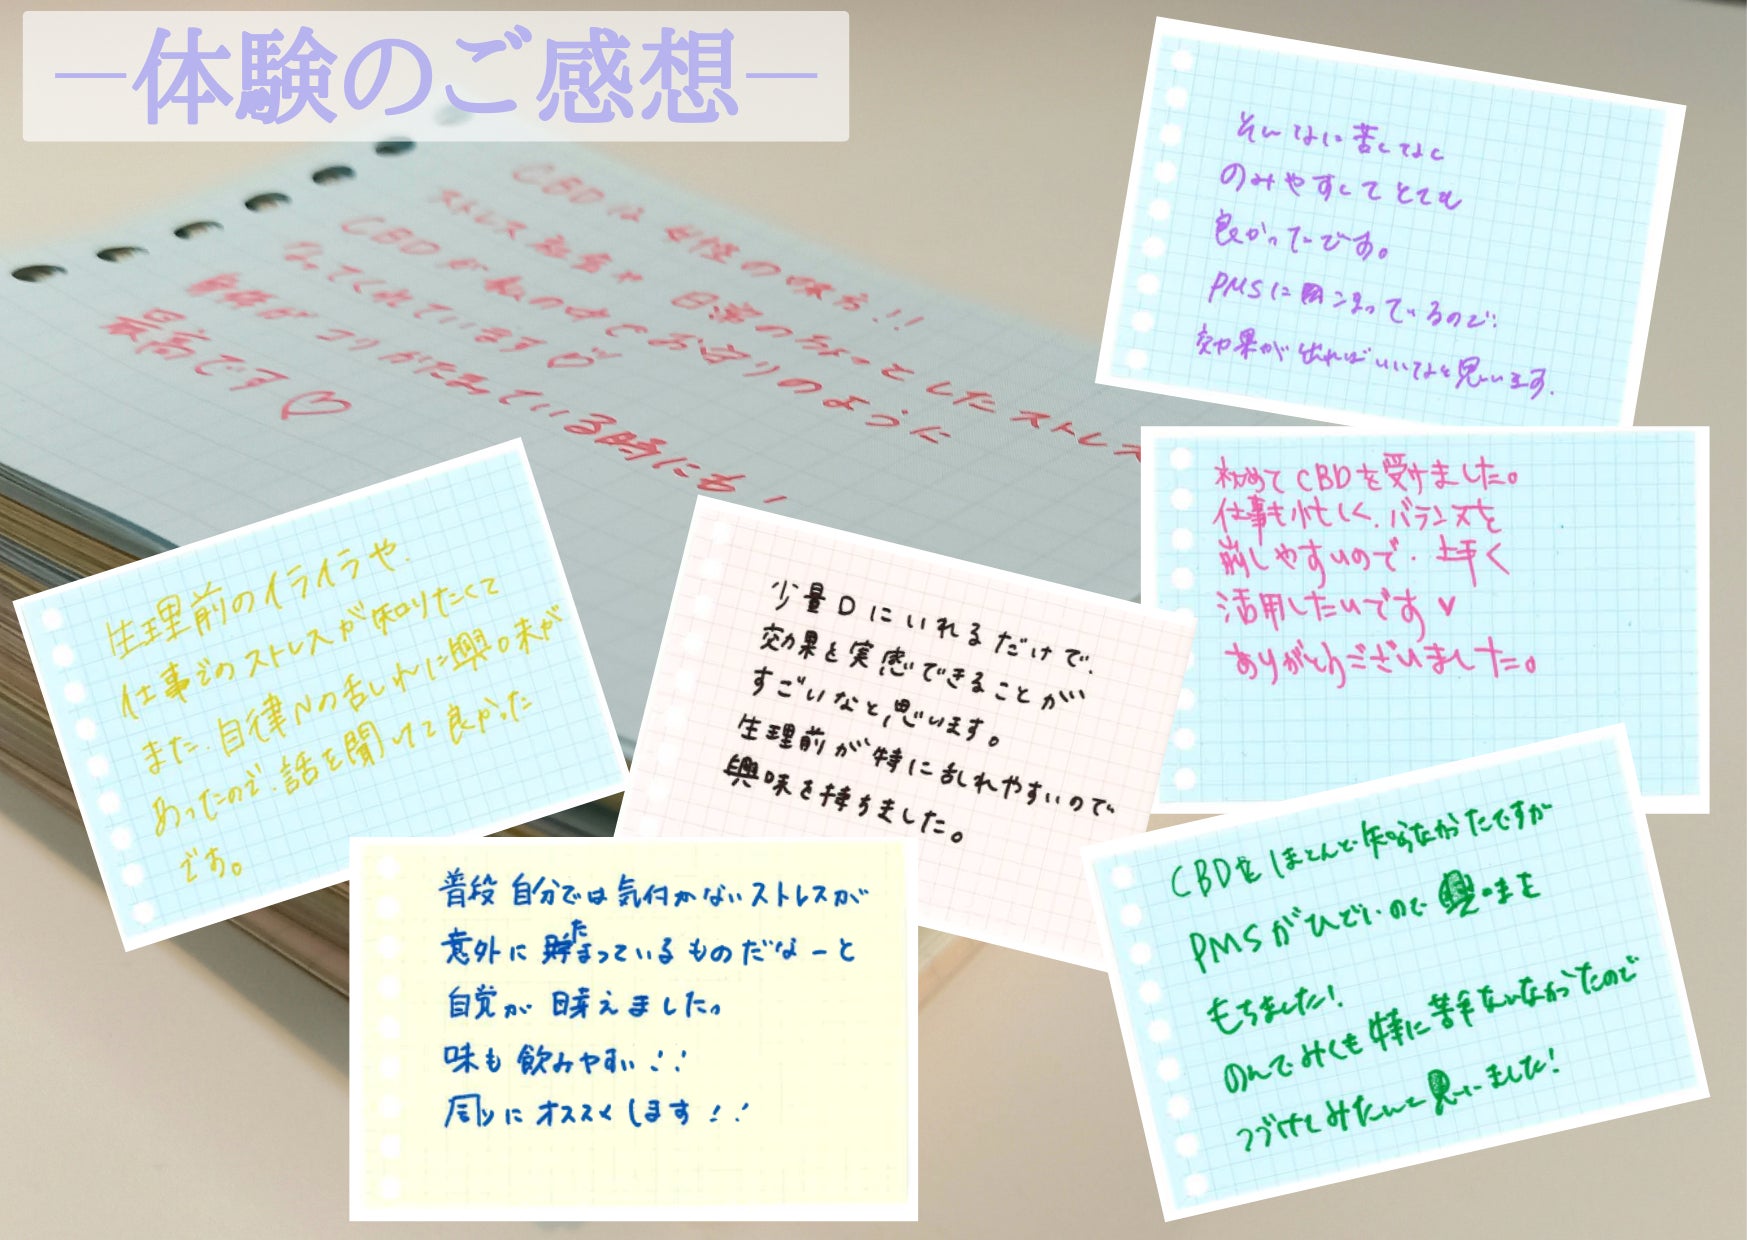 ―体験のご感想―
CBDは女性の味方!!
ストレス社会や日常のちょっとしたストレス
CBDが私の中でお守りのように
なってくれています♡
身体がコリかたまっている時にも!
最高です♡
そんなに苦くなく
のみやすくてとても
良かったです。
PMSに困っているので
効果が出ればいいなと思います。
初めてCBDを受けました。
仕事も忙しく、バランスを
崩しやすいので、上手く
活用したいです♥
ありがとうございました。
生理前のイライラや、
仕事でのストレスが知りたくて
また、自律Nの乱れに興味が
あったので、話を聞けて良かった
です。
少量口にいれるだけで、
効果を実感できることが
すごいなと思います。
生理前が特に乱れやすいので
興味を持ちました。
普段自分では気付かないストレスが
意外に貯まっているものだなーと
た
自覚が芽えました。
味も飲みやすい!!
周りにオススメします!!
CBDをほとんど知らなかったですが
PMSがひどいので興味を
もちました!
のんでみても特に苦手ないなかったので
つづけてみたいと思いました!